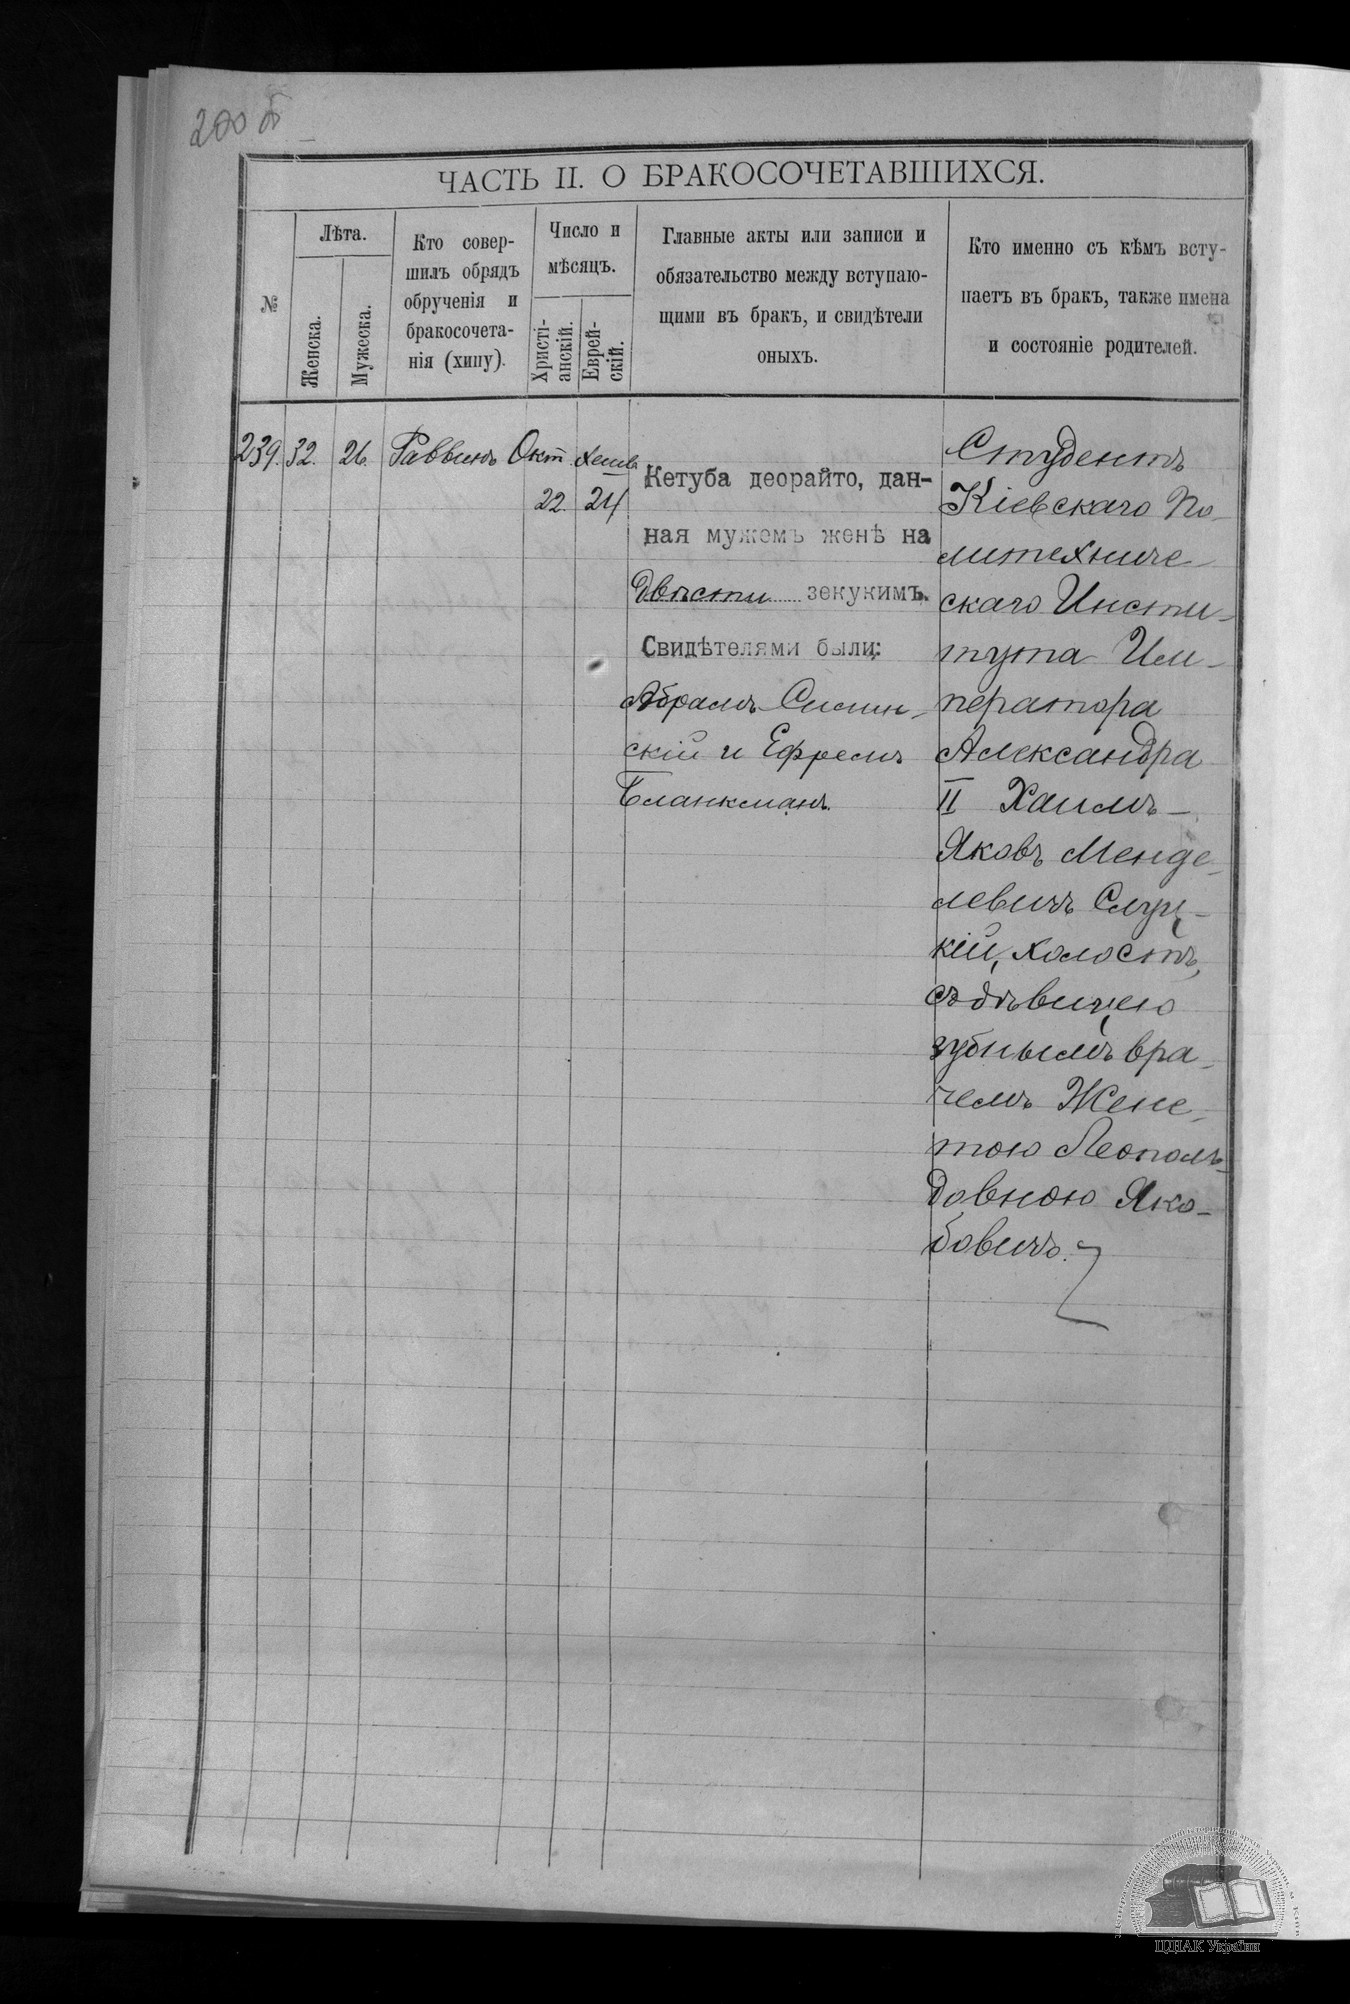 200 б
ЧАСТЬ II. О БРАКОСОЧЕТАВШИХСЯ.
№
Лѣта.
Женска.
Мужеска.
Кто совер-
шилъ обрядъ
обрученія и
бракосочета-
нія (хипу).
Число и
мѣсяцъ.
Христі-
анскій.
Еврей-
скій.
Главные акты или записи и
обязательство между вступаю-
щими въ бракъ, и свидѣтели
оныхъ.
Кто именно съ кѣмъ всту-
паетъ въ бракъ, также имена
и состояніе родителей.
239. 32. 26. Раввинъ Окт. Хешв.
22. 24
Кетуба деорайто, дан-
ная мужемъ женѣ на
двѣсти зекукимъ.
Свидѣтелями были:
Абрамъ Силин-
скій и Ефремъ
Бланкманъ.
Студентъ
Кіевскаго По-
литехниче-
скаго Инсти-
тута Им-
ператора
Александра
II Хаимъ-
Яковъ Менде-
левичъ Слуц-
кій, холостъ,
съ дѣвицею
зубнымъ вра-
чемъ Жене-
тою Леополь-
довною Яко-
бовичъ.
ЦДІАК України